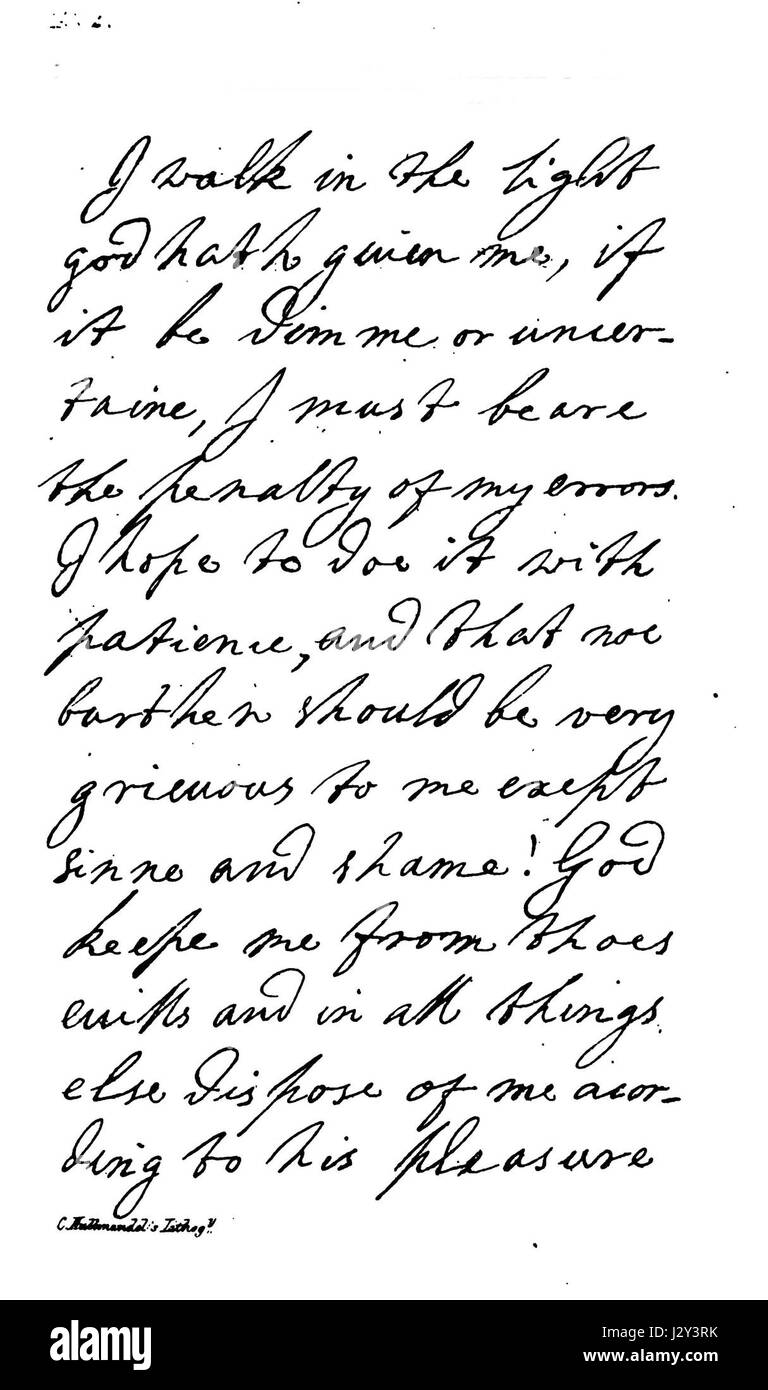 I walk in the light
god hath giuen me, if
it be dimme or uncer-
taine, I must beare
the penalty of my errors.
I hope to doe it with
patience, and that noe
burthen should be very
grieuous to me except
sinne and shame! God
keepe me from thoes
euills and in all things
else dispose of me acor-
ding to his pleasure
C. Hullmandel's Lithogy.
alamy
alamy
Image ID: J2Y3RK
www.alamy.com